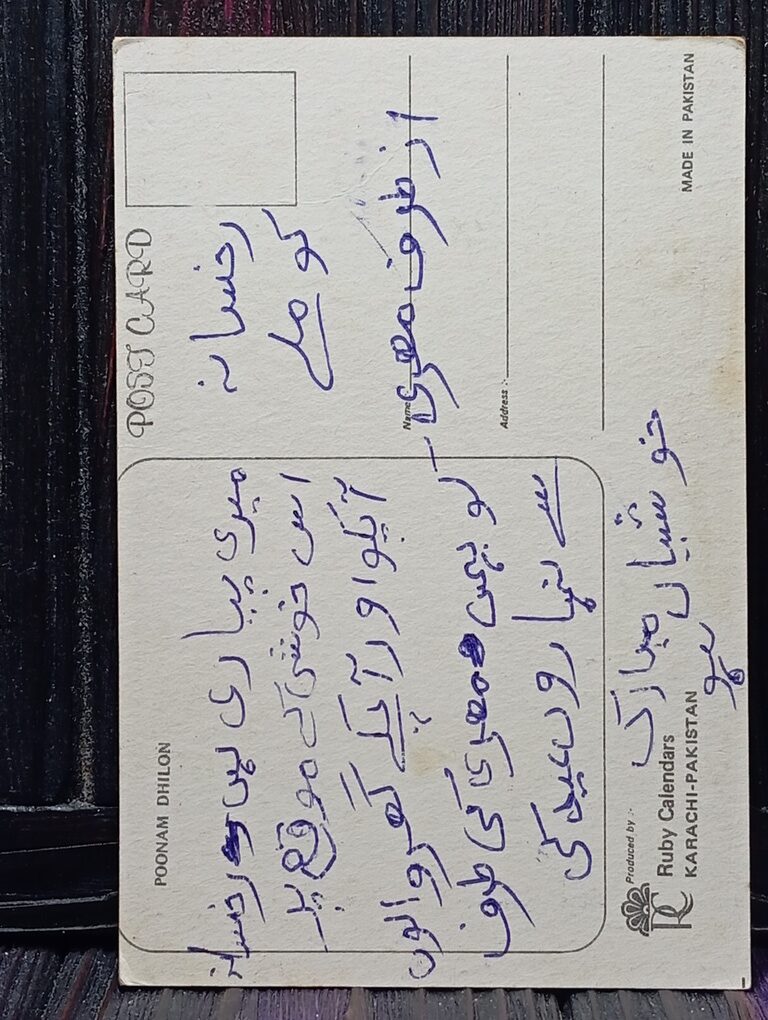 POONAM DHILON
میری پیاری بہن رخسانہ
اس خوشی کے موقع پر
آپکو اور آپکے گھر والوں
کو بہن مصری کی طرف
سے عید کی
خوشیاں مبارک
ہو
Produced by :-
RC Ruby Calendars
KARACHI-PAKISTAN
POST CARD
رخسانہ
کو ملے
از طرف مصری
Name :-
Address :-
MADE IN PAKISTAN